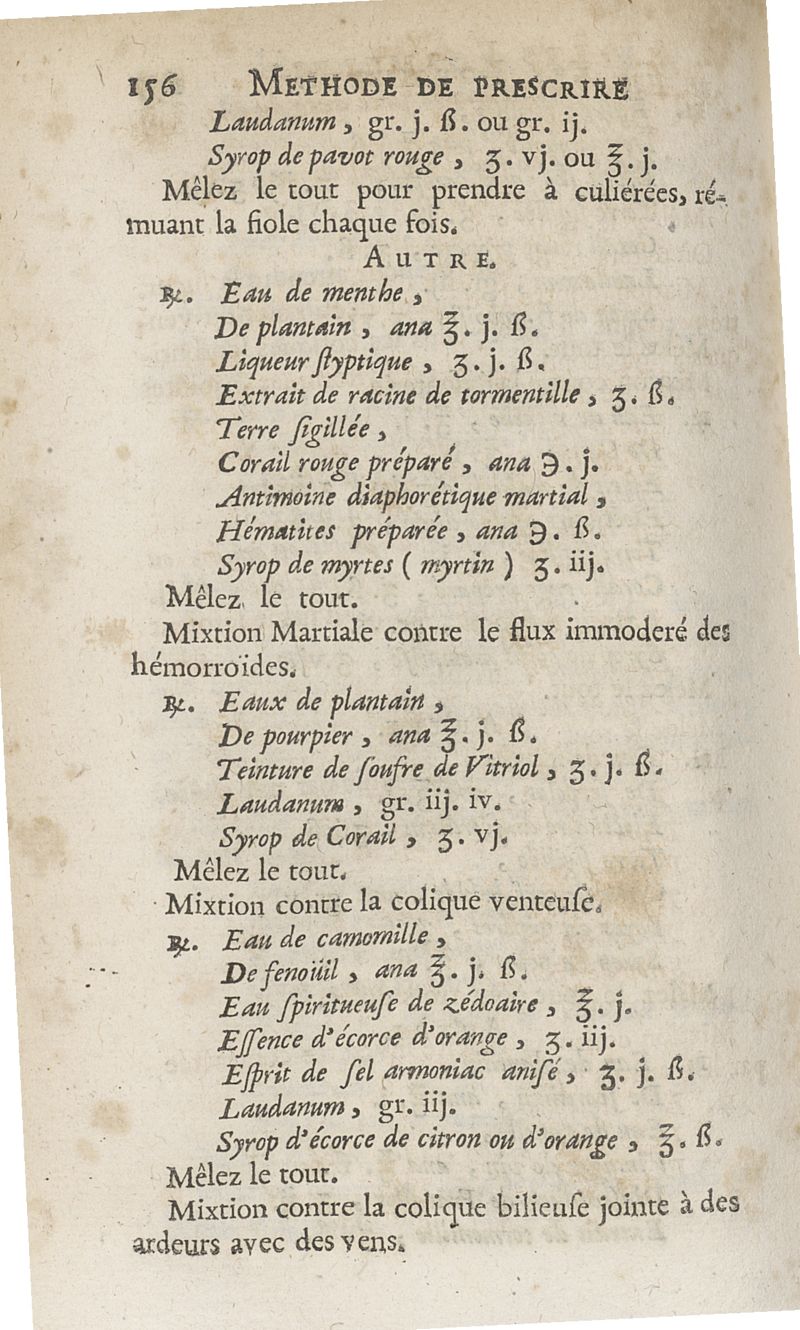 156 METHODE DE PRESCRIRE
Laudanum, gr. j. ß. ou gr. ij.
Syrop de pavot rouge, ʒ. vj. ou ℥. j.
Mêlez le tout pour prendre à culiérées, ré-
muant la fiole chaque fois.
AUTRE.
℞. Eau de menthe,
De plantain, ana ℥. j. ß.
Liqueur ſtyptique, ʒ. j. ß.
Extrait de racine de tormentille, ʒ. ß.
Terre ſigillée,
Corail rouge préparé, ana ℈. j.
Antimoine diaphorétique martial,
Hématites préparée, ana ℈. ß.
Syrop de myrtes ( myrtin ) ʒ. iij.
Mêlez le tout.
Mixtion Martiale contre le flux immoderé des
hémorroïdes.
℞. Eaux de plantain,
De pourpier, ana ℥. j. ß.
Teinture de ſoufre de Vitriol, ʒ. j. ß.
Laudanum, gr. iij. iv.
Syrop de Corail, ʒ. vj.
Mêlez le tout.
Mixtion contre la colique venteuſe.
℞. Eau de camomille,
De fenoüil, ana ℥. j. ß.
Eau ſpiritueuſe de zédoaire, ℥. j.
Eſſence d'écorce d'orange, ʒ. iij.
Eſprit de ſel armoniac aniſé, ʒ. j. ß.
Laudanum, gr. iij.
Syrop d'écorce de citron ou d'orange, ℥. ß.
Mêlez le tout.
Mixtion contre la colique bilieuſe jointe à des
ardeurs avec des vens.